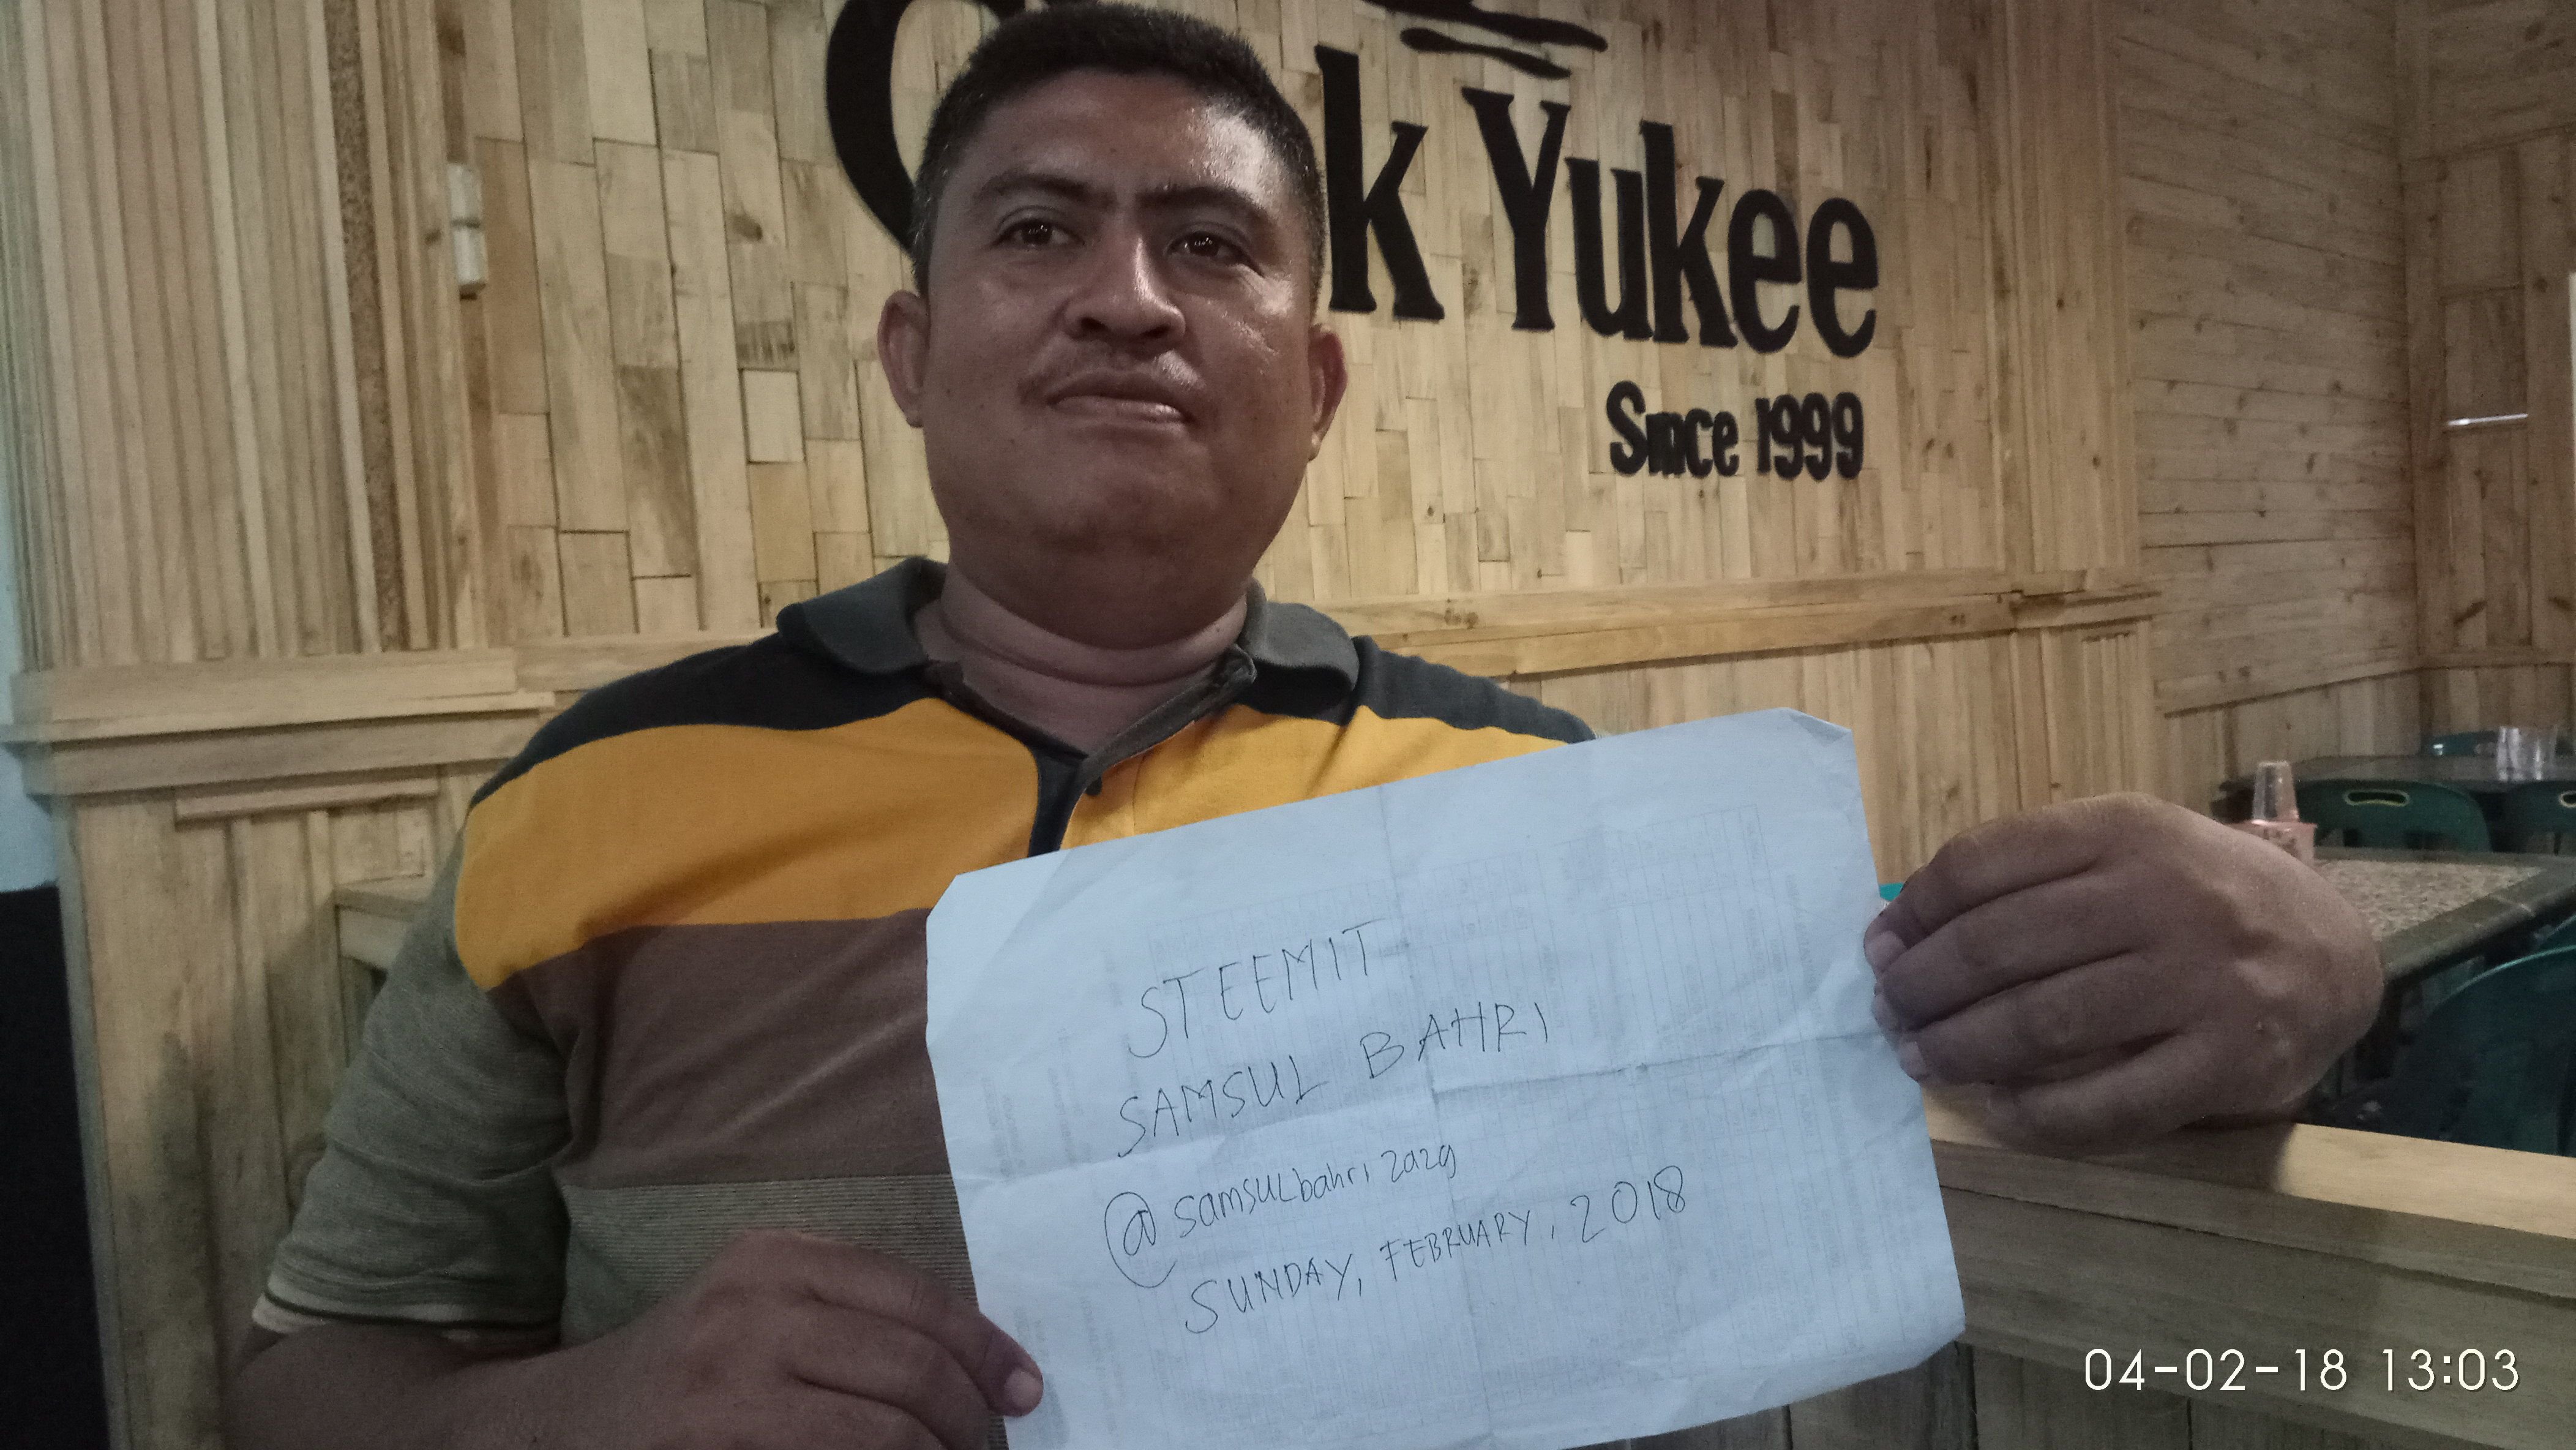 k Yukee
Since 1999
STEEMIT
SAMSUL BAHRI
@samsulbahri2a2g
SUNDAY, FEBRUARY, 2018
04-02-18 13:03